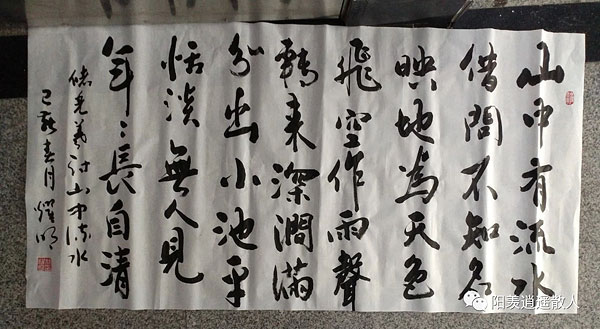 山中有流水
借問不知名
映地為天色
飛空作雨聲
轉來深澗滿
分出小池平
恬淡無人見
年〻長自清
儲光羲詩山中流水
己亥春月耀明
阳羡逍遥散人